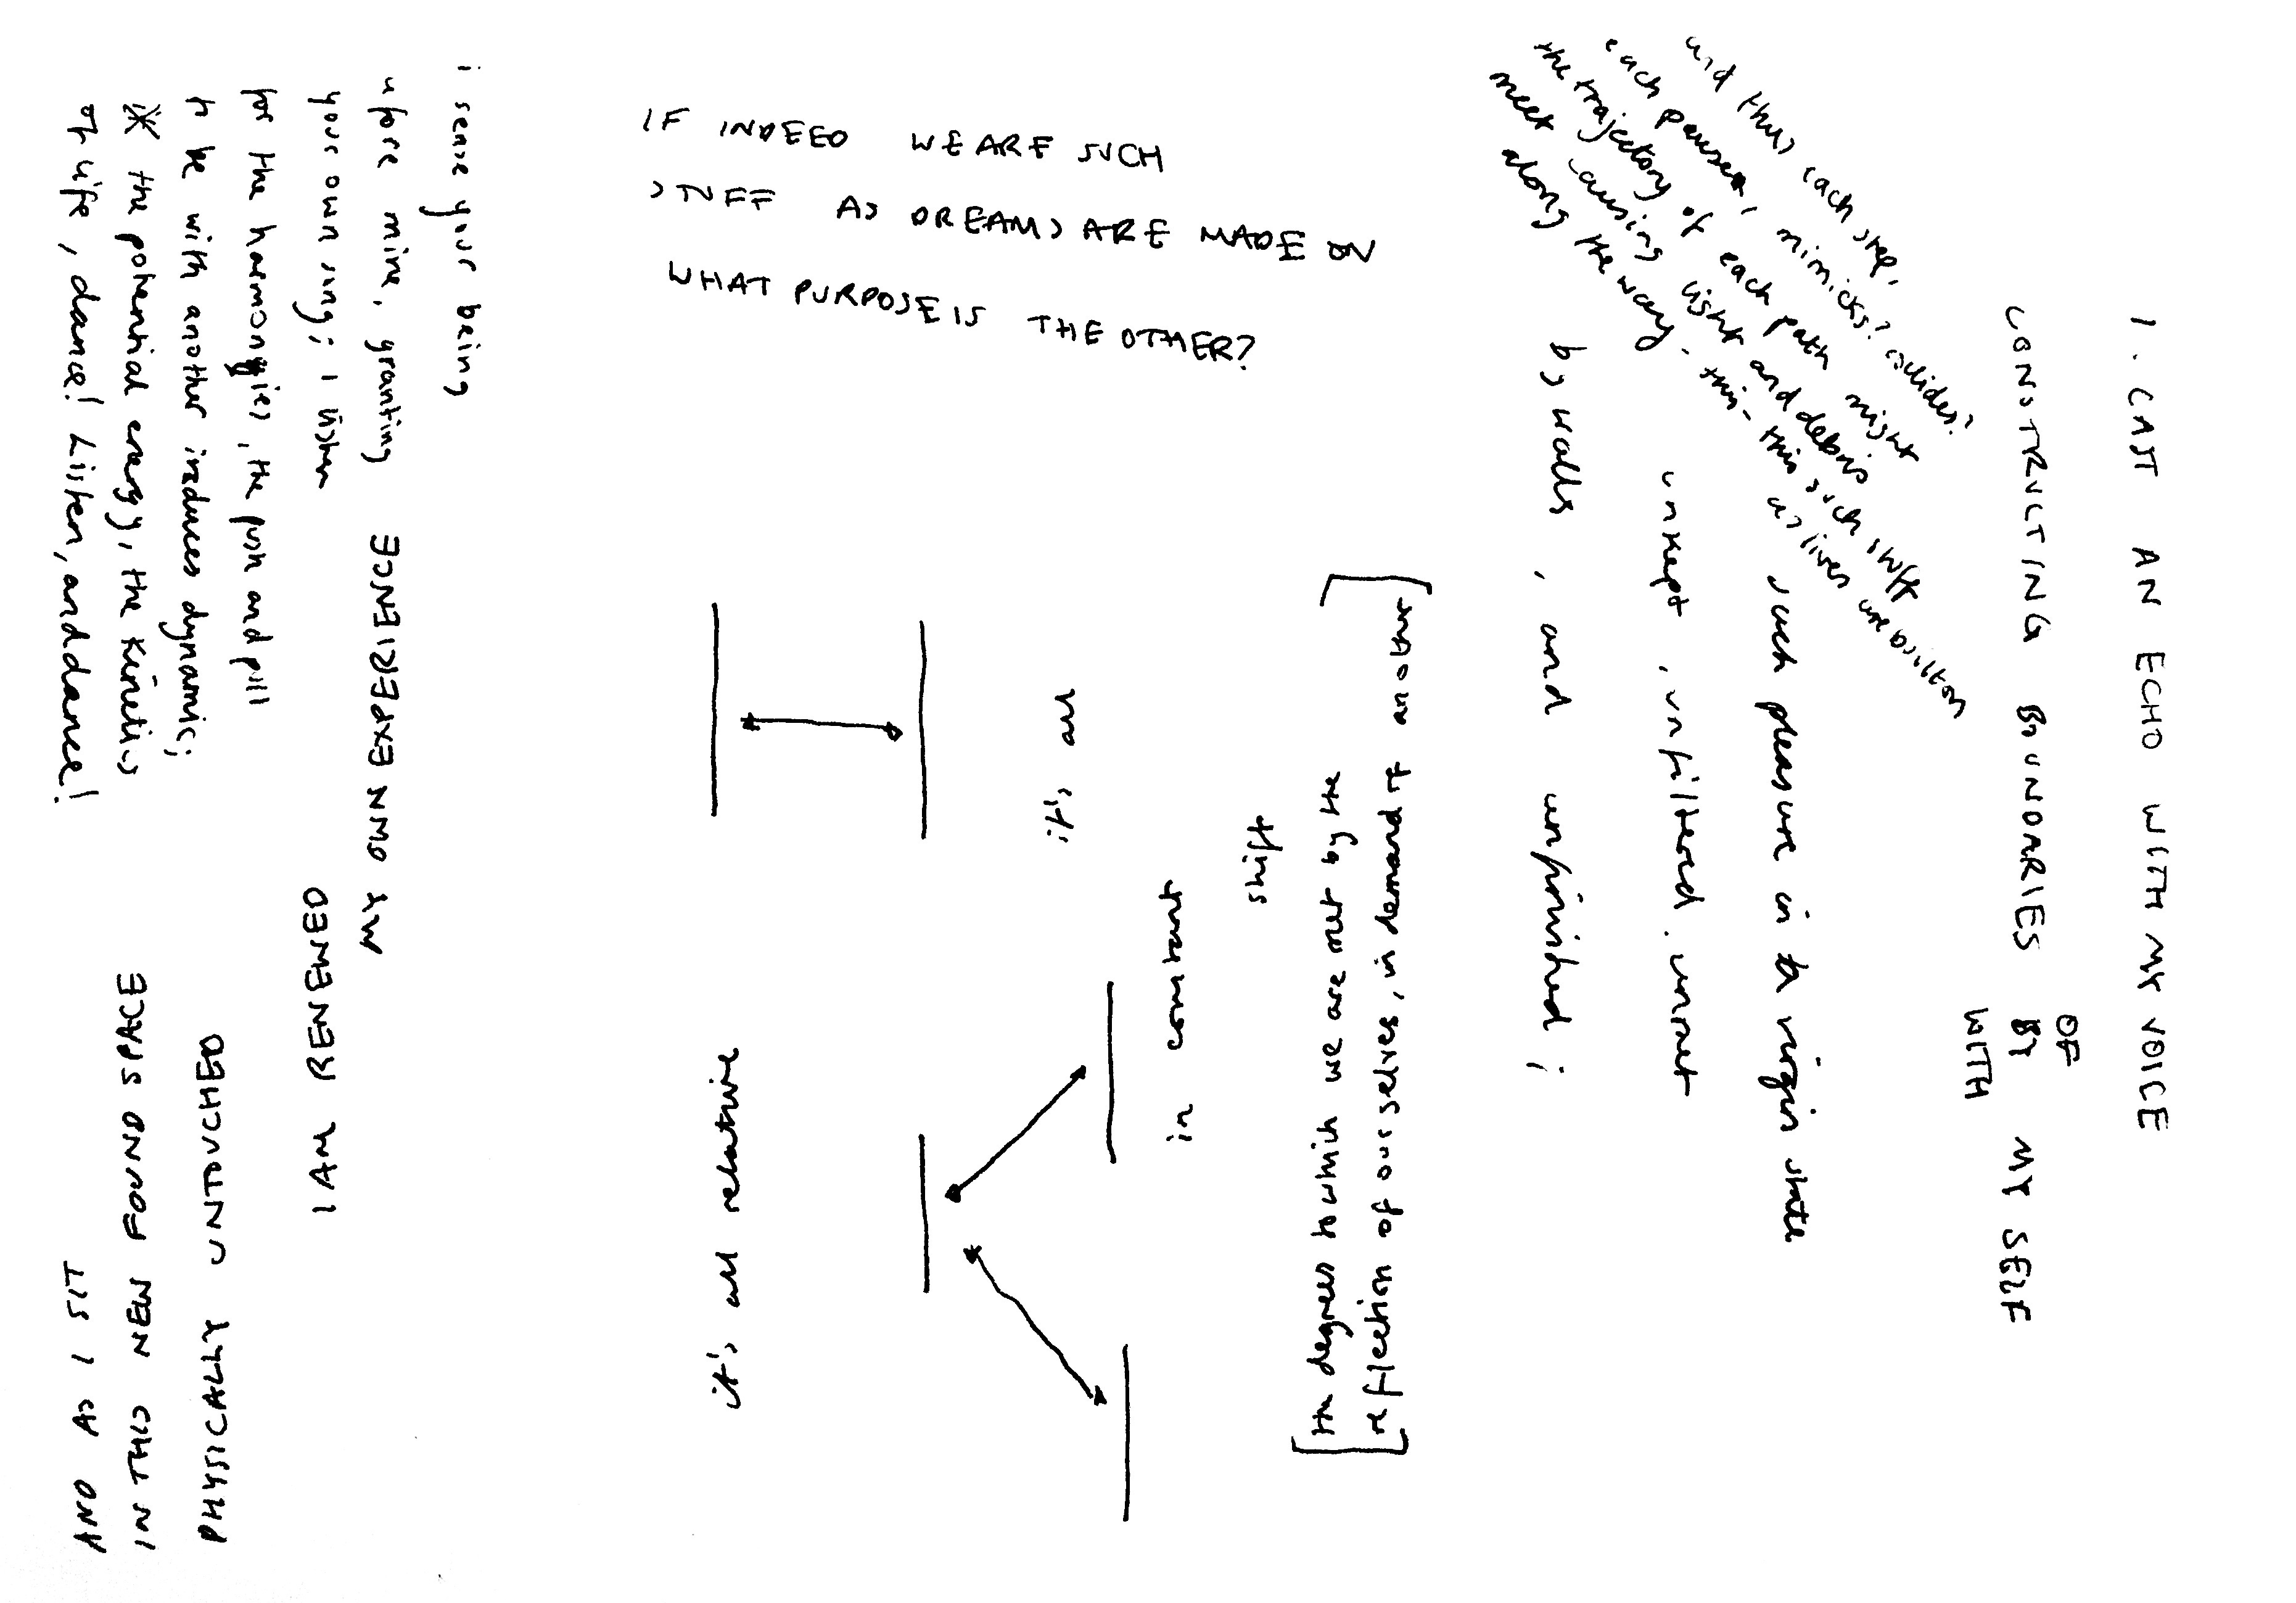 IF INDEED WE ARE SUCH
STUFF AS DREAMS ARE MADE ON
WHAT PURPOSE IS THE OTHER?
and thus each step,
each pause, mimicks? collides?
the trajectory of each path might
meet causing light and debris
along the way. this - this such stuff
as lives are built on
1. CAST AN ECHO WITH MY VOICE
CONSTRUCTING BOUNDARIES OF
BY MY SELF
WITH
such pleasure in virgin state
unkept, unfiltered. unmet
by walls, and unfinished;
i sense your being
before mine, granting
your own sing; i listen
for the harmonies, the push and pull
to be with another induces dynamic;
the potential energy, the kinetics
of life, dance! Listen, and dance!
AND AS I SIT
IN THIS NEW FOUND SPACE
PHYSICALLY UNTOUCHED
I AM RENEWED
MY OWN EXPERIENCE
it's all relative
it's all
in constant
shift
[the degrees to which we are met by the
reflection of ourselves, in demand of another]